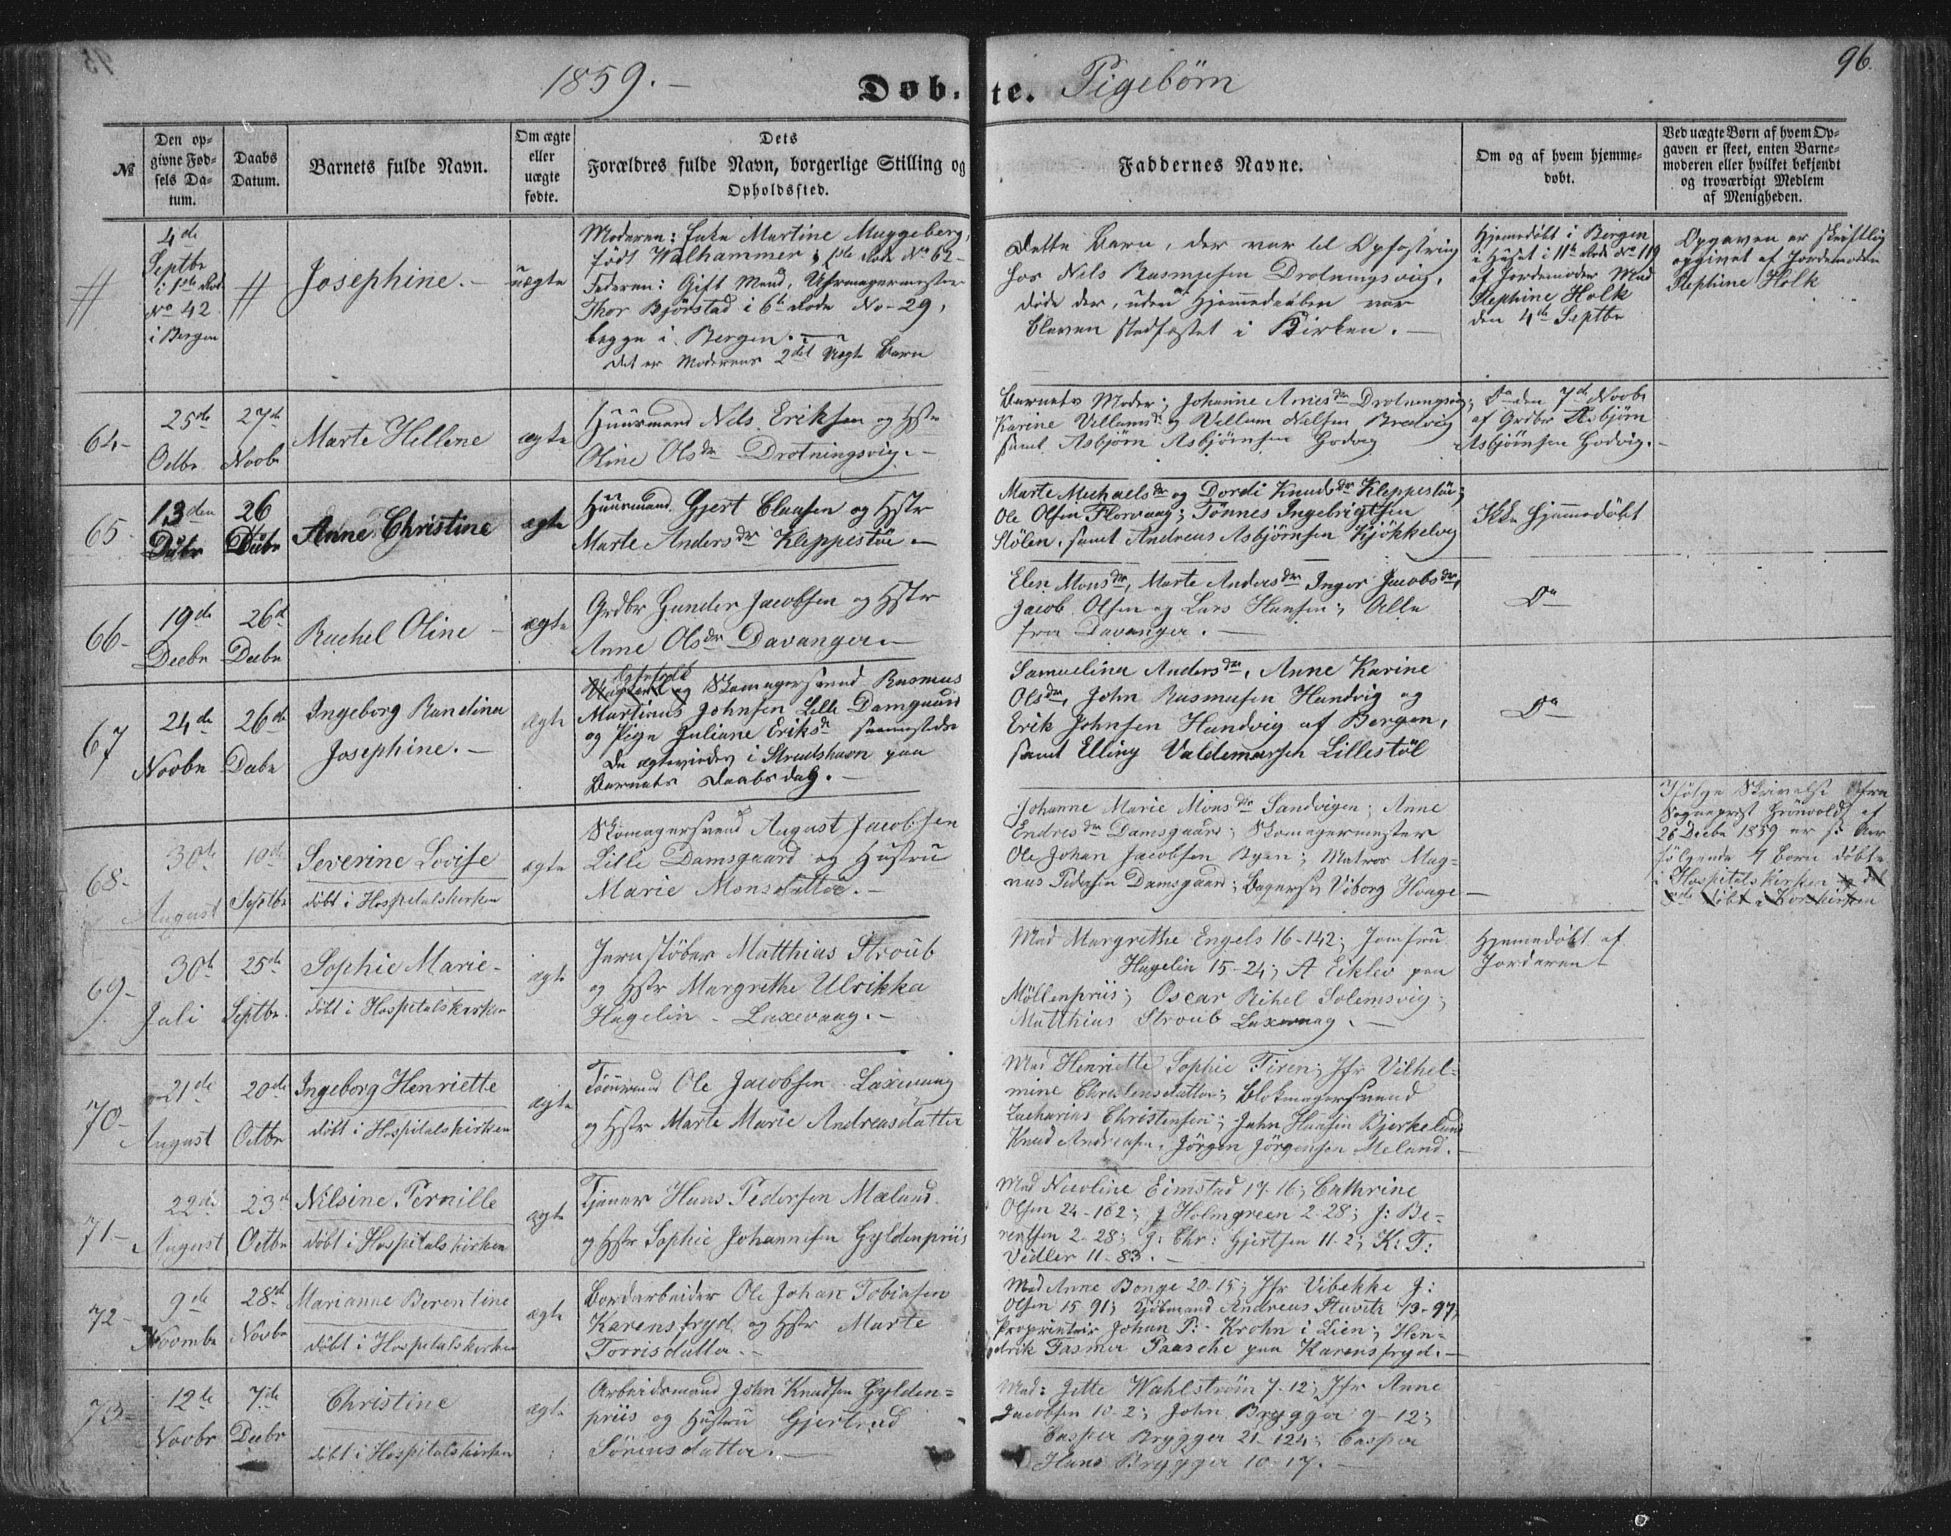 96.
1859. – Døb- te. Pigebørn
№
Den op-
givne Fød-
sels Da-
tum.
Daabs
Datum.
Barnets fulde Navn.
Om ægte
eller
uægte
fødte.
Dets
Forældres fulde Navn, borgerlige Stilling og
Opholdssted.
Faddernes Navne.
Om og af hvem hjemme-
døbt.
Ved uægte Børn af hvem Op-
gaven er skeet, enten Barne-
moderen eller hvilket bekjendt
og troværdigt Medlem
af Menigheden.
4de
Septbr
i 1ste Rod
No 42
i Bergen
Josephine. –
uægte
Moderen: Enke Martine Muggeberg,
født Walhammer, 1ste Rode No 62 –
Faderen: Gift Mand, Uhrmagermester
Thor Bjørstad i 6te Rode No – 29,
begge i Bergen. –
Det er Moderens 2det uægte Barn
Dette Barn, der var til Opfostring
hos Nils Rasmussen Drotningsvig,
døde der, uden at Hjemmedaaben var
bleven stadfæstet i Kirken. –
Hjemmedøbt i Bergen
i Huset i 11te Rode No 119
af Jordemoder Mad
Stephine Holk
den 4de Septbr
Opgaven er skriftlig
opgivet af Jordemoder
Stephine Holk
64 –
25de
Octbr
27de
Novbr
Marte Hellene
ægte
Huusmand Nels Eriksen og Hstr
Oline Olsdr Drotningsvig. –
Barnets Moder; Johanne Arnesdr Drotningsvig;
Karine Villumsdr og Villum Nilsen Bredvig
samt Asbjørn Asbjørnsen Godvig
Ja den 7de Novbr
af Grdbr Asbjørn
Asbjørnsen Godvig. –
65 –
13den
Debr
26
Debr
Anne Christine
ægte
Huusmand Gjert Claasen og Hstr
Marte Andersdr Kleppestøe –
Marte Michaelsdr og Dordi Knudsdr Kleppestøe;
Ole Olsen Florvaag; Tønnes Ingebrigtsen
Stølen, samt Andreas Asbjørnsen Kjøkkelvig
Ikke Hjemmedøbt
66 –
19de
Decbr
26d
Decbr
Rachel Oline –
ægte
Grdbr Gunder Jacobsen og Hstr
Anne Olsdr Davanger –
Elen Monsdr, Marte Andersdr, Inger Jacobsdr,
Jacob Olsen og Lars Hansen; Alle
fra Davanger. –
Do
67
24de
Novbr
26de
Decbr
Ingeborg Randina
Josephine. –
ægte
Skomagersvend Rasmus
Martinus Johnsen Lille Damgaard
og Pige Juliane Eriksdr sammesteds
De ægteviedes i Strudshavn paa
Barnets Daabsdag. –
Samuelina Andersdr, Anne Karine
Olsdr, John Rasmusen Hundvig og
Erik Johnsen Hundvig af Bergen,
samt Elling Valdemarsen Lillestøl
Do
68 –
30te
August
10de
Septbr
Severine Lovise
døbt i Hospitalskirken
ægte
Skomagersvend August Jacobsen
Lille Damsgaard og Hustru
Marie Monsdatter. –
Johanne Marie Monsdr Sandvigen; Anne
Endresdr Damsgaard; Skomagermester
Ole Johan Jacobsen Byen; Matros Mag-
nus Pedersen Damsgaard; Viborg Hauge –
Ifølge Skrivelse fra
Sogneprst Grønvold af
26 Decbr 1859 er
følgende Børn døbte
i Hospitalskirken
69 –
30te
Juli
25de
Septbr.
Sophie Marie –
døbt i Hospitalskirken
ægte
Jernstøber Matthias Stroub
og Hstr Margrethe Ulrikka
Hagelin – Laxevaag. –
Mad Margrethe Engels 16-142; Jomfru
Hagelin 15-24; A Eiklev paa
Möllenpriis; Oscar Rihel Solemsvig;
Matthias Stroub Laxevaag. –
Hjemmedøbt af
70 –
21de
August
20de
Octbr
Ingeborg Henriette
døbt i Hospitalskirken
ægte
Tømmermand Ole Jacobsen Laxevaag
og Hstr Marte Marie Andreasdatter
Mad Henriette Sophie Firen; Jfr Vilhel-
mine Christensdatter; Blokmagersvend
Zacharias Christensen; John Hansen Bjerkelund
Knud Andersen, Jørgen Jørgensen Meland. –
71 –
22de
August
23d
Octbr
Nilsine Pernille
døbt i Hospitalskirken
ægte
Tjener Hans Pedersen Mæland
og Hstr Sophie Johannesen Gyldenpriis
Mad Nicoline Eimstad 17-16; Cathrine
Olsen 24-162; J Holmgreen 2-28; J: Be-
rentsen 2-28; J: Chr: Gjertsen 11-2; K: F:
Vidler 11-83. –
72 –
9de
Novmbr
28de
Novbr
Marianne Berentine
døbt i Hospitalskirken
ægte
Bordarbeider Ole Johan Tobiasen
Karensfryd og Hstr Marte
Torrisdatter. –
Mad Anne Bonge 20-15; Jfr Vibekke J:
Olsen 15-91; Kjøbmand Andreas Stuvitz 13-97,
Proprietair Johan P: Krohn i Lien; Hen-
drik Fasmer Paasche paa Karensfryd. –
73 –
12te
Novbr
7de
Decbr
Christine
døbt i Hospitalskirken
ægte
Arbeidsmand John Knudsen Gylden-
priis og Hustru Gjertrud
Sørensdatter. –
Mad: Jette Wahlstrøm 7-12; Jfr Anne
Jacobsen 10-2; John Brygger 9-12;
Casper Brygger 21-124; Casper
Hans Brygger 10-17. –